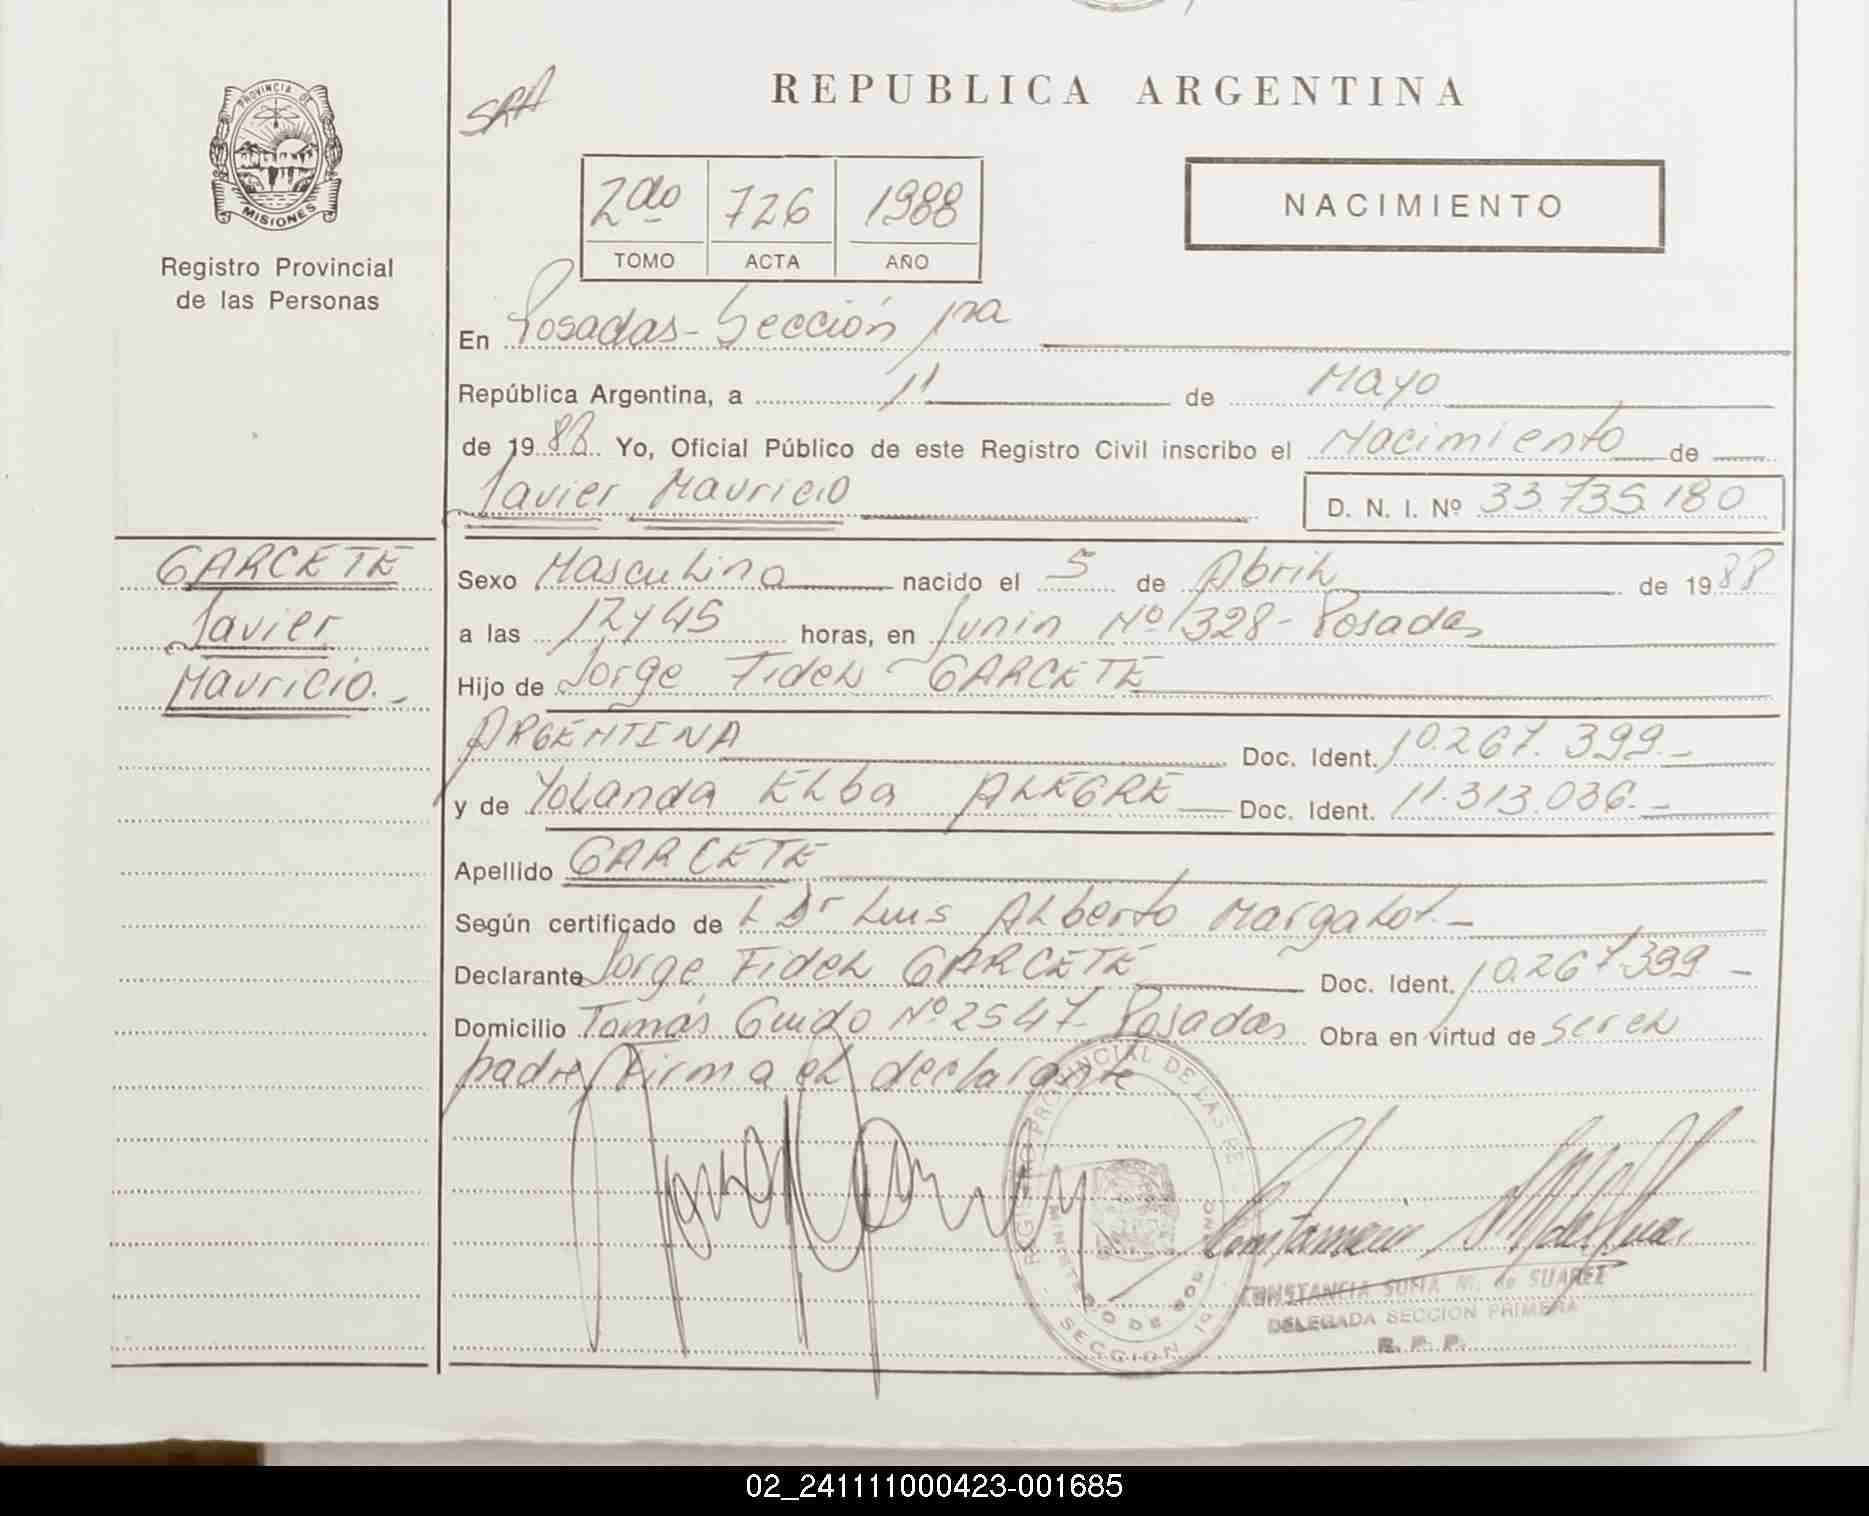 PROVINCIA DE
MISIONES
Registro Provincial
de las Personas
SRA
REPUBLICA ARGENTINA
2do 726 1988
TOMO ACTA AÑO
NACIMIENTO
En Posadas-Sección 1ra
República Argentina, a 11 de Mayo
de 1988 Yo, Oficial Público de este Registro Civil inscribo el Nacimiento de
Javier Mauricio D. N. I. Nº 33.735.180
GARCETE
Javier
Mauricio.-
Sexo Masculino nacido el 5 de Abril de 1988
a las 12 y 45 horas, en Junin Nº 328- Posadas
Hijo de Jorge Fidel GARCETE
ARGENTINA Doc. Ident. 10.267.399.-
y de Yolanda Elba ALEGRE Doc. Ident. 11.313.036.-
Apellido GARCETE
Según certificado de l Dr Luis Alberto Margalot.-
Declarante Jorge Fidel GARCETE Doc. Ident. 10.267399-
Domicilio Tomás Guido Nº 2547- Posadas Obra en virtud de ser el
padre, Firma el declarante
REGISTRO PROVINCIAL DE LAS PE
MINISTERIO DE GOBIERNO
SECCION 1a
CONSTANCIA SOFIA M. de SUAREZ
DELEGADA SECCION PRIMERA
R. P. P.
02_241111000423-001685